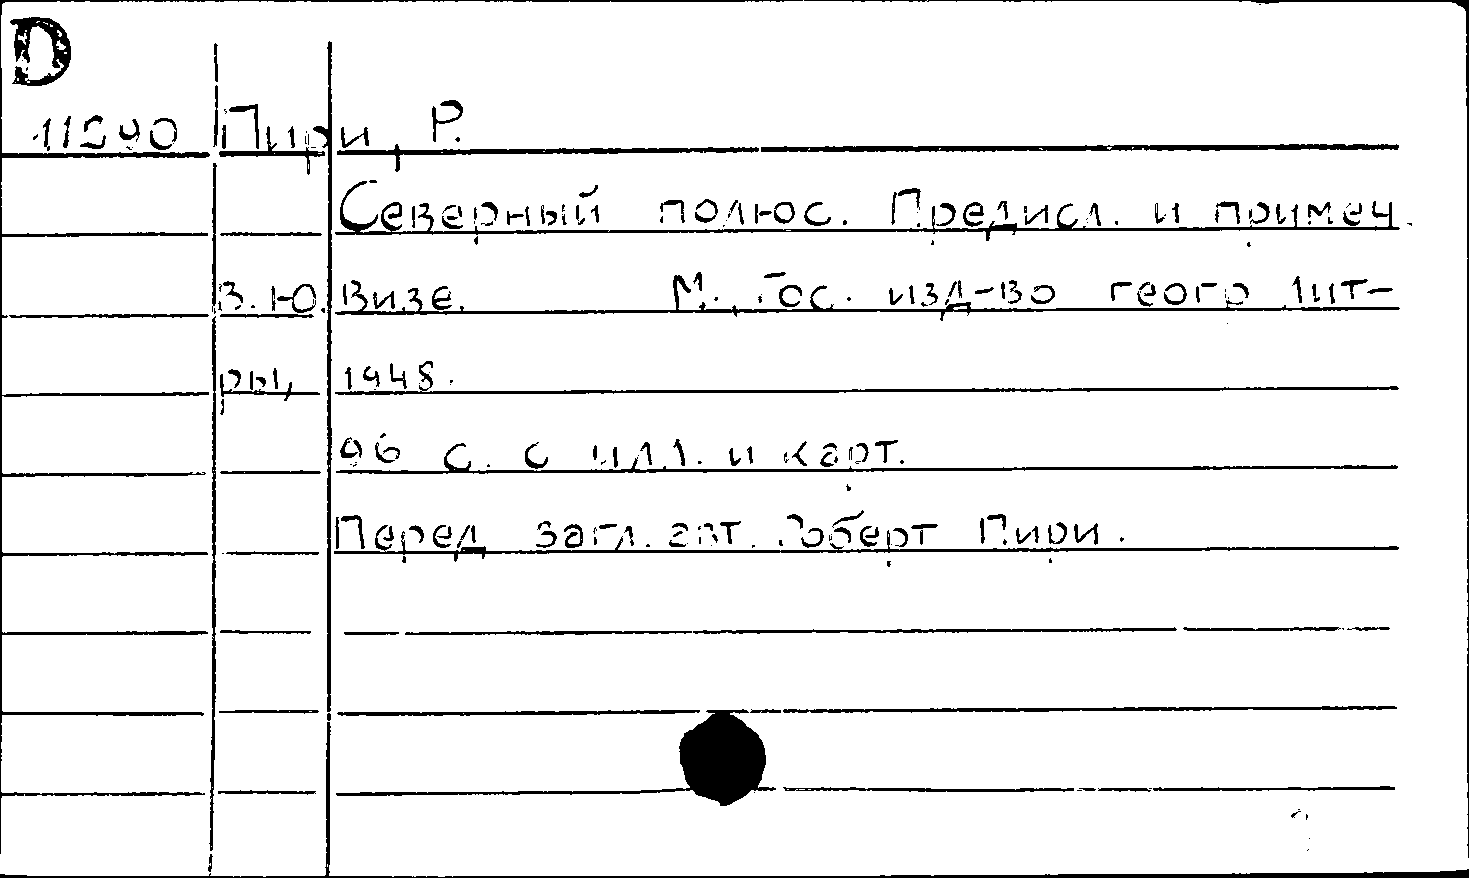 D
11290 Пири, Р.
Северный полюс. Предисл. и примеч.
В.Ю. Визе. М., Гос. изд-во геогр лит-
ры, 1948.
96 с. с илл. и карт.
Перед загл. авт. Роберт Пири.